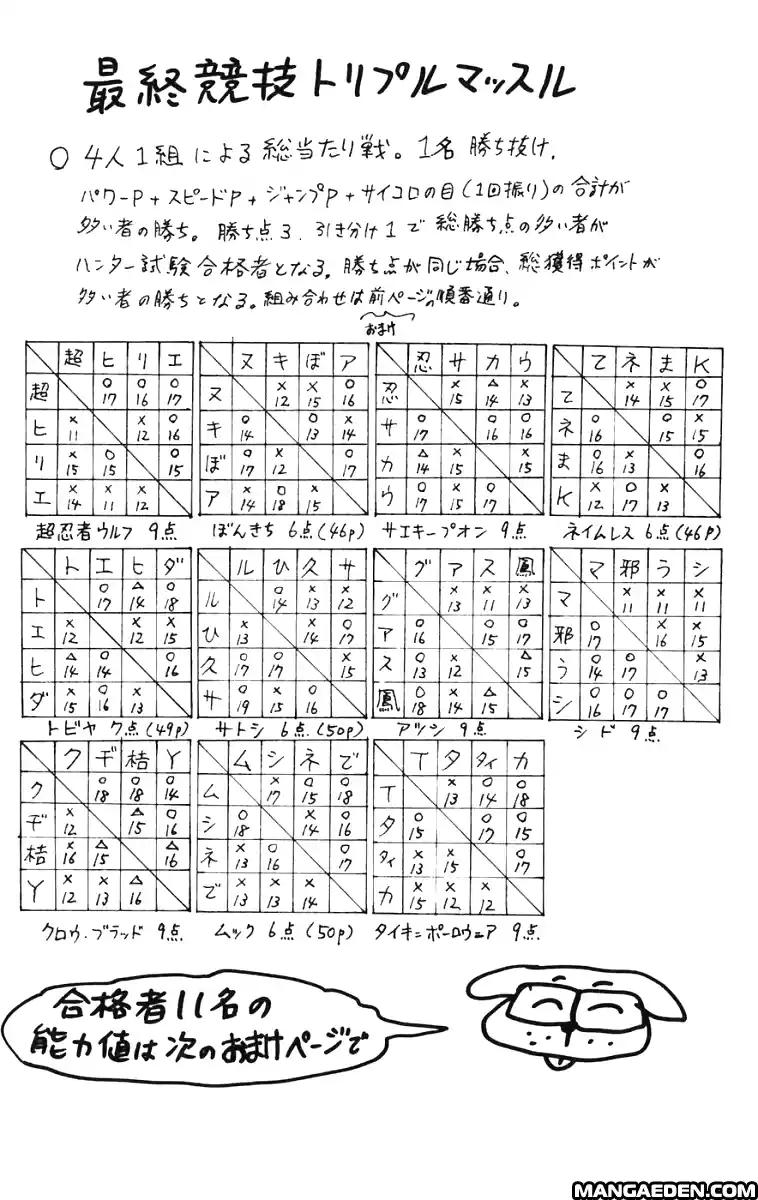 最終競技トリプルマッスル
○ 4人1組による総当たり戦。1名勝ち抜け.
パワーP+スピードP+ジャンプP+サイコロの目(1回振り)の合計が
多い者の勝ち。勝ち点3.引き分け1で総勝ち点の多い者が
ハンター試験合格者となる。勝ち点が同じ場合、総獲得ポイントが
多い者の勝ちとなる。組み合わせは前ページの順番通り。
おまけ
超 ヒ リ エ
超 ○17 ○16 ○17
ヒ ×11 ×12 ○16
リ ×15 ○15 ○15
エ ×14 ×11 ×12
超忍者ウルフ 9点
ヌ キ ぼ ア
ヌ ×12 ×15 ○16
キ ○14 ○13 ×14
ぼ ○17 ×12 ○17
ア ×14 ○18 ×15
ぼんきち 6点(46p)
忍 サ カ ウ
忍 ×15 △14 ×13
サ ○17 ○16 ○16
カ △14 ×15 ×15
ウ ○17 ×15 ○17
サエキープオン 9点
て ネ ま K
て ×14 ×15 ○17
ネ ○16 ○15 ×15
ま ○16 ×13 ○16
K ×12 ○17 ×13
ネイムレス 6点(46p)
ト エ ヒ ダ
ト ○17 △14 ○18
エ ×12 ×12 ×15
ヒ △14 ○14 ○16
ダ ×15 ○16 ×13
トビヤ 7点(49p)
ル ひ 久 サ
ル ○14 ×13 ×12
ひ ×13 ×14 ○17
久 ○17 ○17 ×15
サ ○19 ×15 ○16
サトシ 6点.(50p)
グ ア ス 鳳
グ ×13 ×11 ×13
ア ○16 ○15 ○17
ス ○13 ×12 △15
鳳 ○18 ×14 △15
アツシ 9点
マ 邪 う シ
マ ×11 ×11 ×11
邪 ○17 ×16 ×15
う ○14 ○17 ×13
シ ○16 ○17 ○17
シド 9点
ク ヂ 桔 Y
ク ○18 ○18 ○14
ヂ ×12 △15 ○16
桔 ×16 △15 △16
Y ×12 ×13 △16
クロウ・ブラッド 9点
ム シ ネ で
ム ×17 ○15 ○18
シ ○18 ×14 ○16
ネ ×13 ○16 ○17
で ×13 ×13 ×14
ムック 6点(50p)
T タ タイ カ
T ×13 ○14 ○18
タ ○15 ○17 ○15
タイ ×13 ×15 ○17
カ ×15 ×12 ×12
タイキ=ポーロウニア 9点
合格者11名の
能力値は次のおまけページで
MANGAEDEN.COM